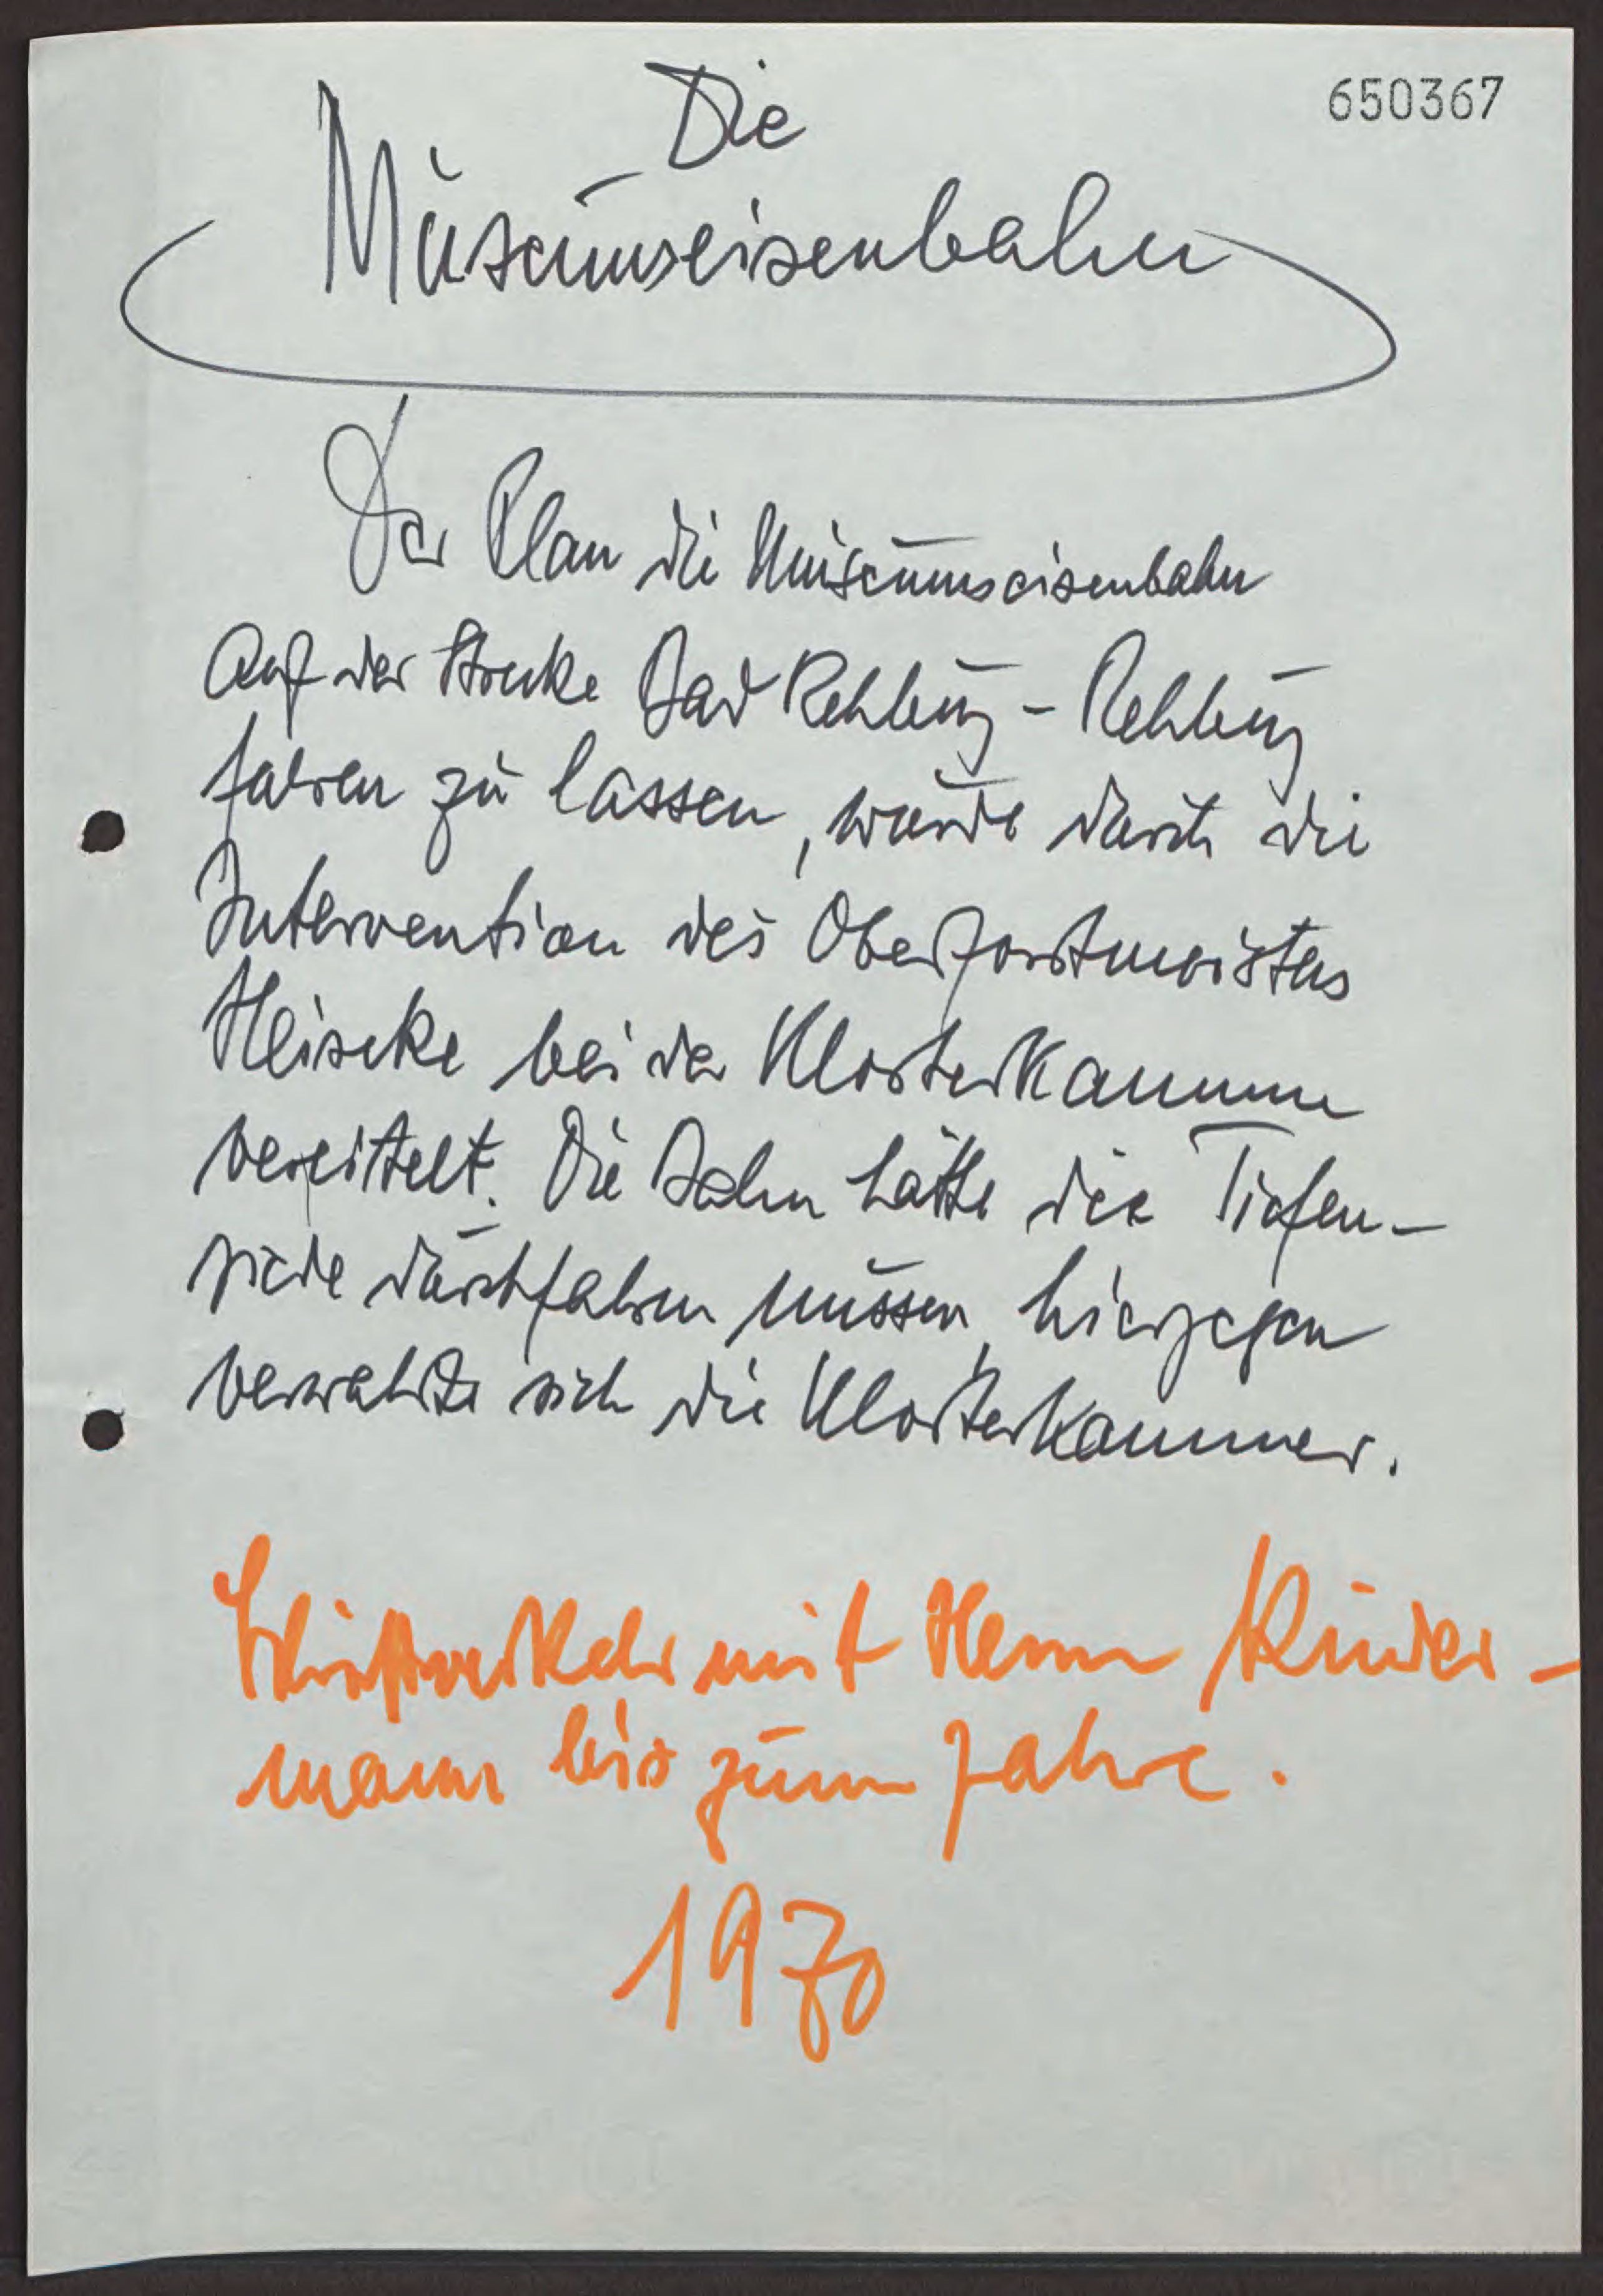 650367
Die
Museumseisenbahn
Der Plan die Museumseisenbahn
auf der Strecke Bad Rehburg - Rehburg
fahren zu lassen, wurde durch die
Intervention des Oberforstmeisters
bei der Klosterkammer
vereitelt. Die Bahn hätte die Tiefen-
riede durchfahren müssen, hiergegen
verwahrte sich die Klosterkammer.
Schriftverkehr mit Herrn Kinder-
mann bis zum Jahre.
1970